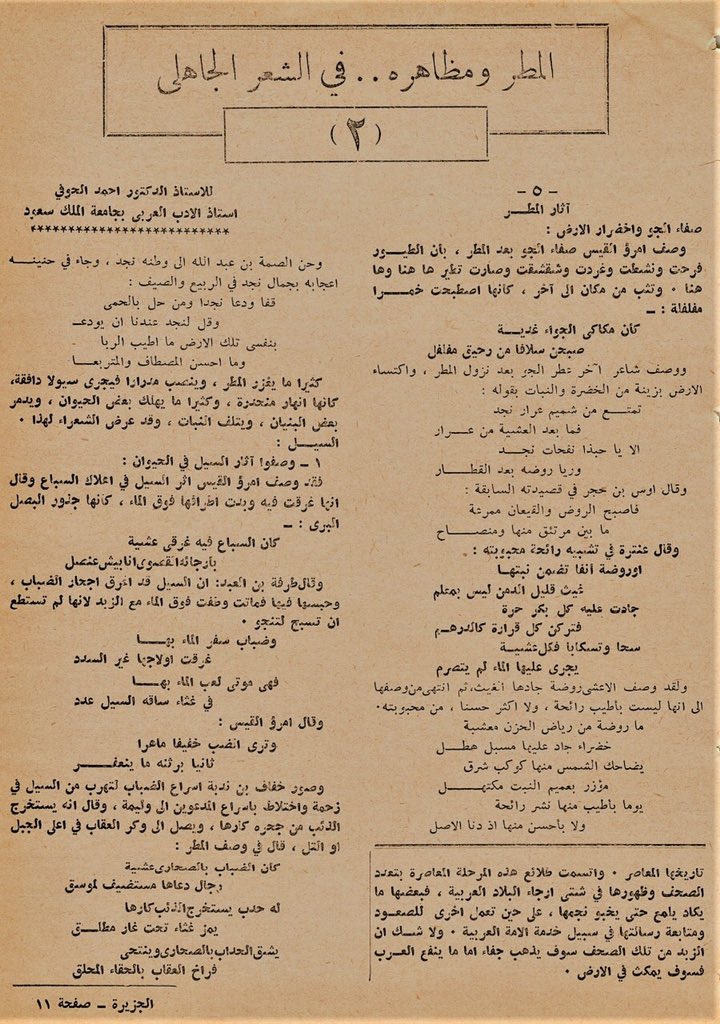 المطر ومظاهره .. في الشعر الجاهلي
(٢)
- ٥ -
آثار المطـــر
صفاء الجو واخضرار الارض :
وصف امرؤ القيس صفاء الجو بعد المطر ، بأن الطيـور
فرحت ونشطت وغردت وشقشقت وصارت تطير ها هنا وها
هنا ٠ وتثب من مكان الى آخر ، كانها اصطبحت خمـــرا
مفلفلة : ــ
كأن مكاكي الجواء غديـة
صبحن سلافا من رحيق مفلفل
ووصف شاعر آخر عطر الجو بعد نزول المطر ، واكتساء
الارض بزينة من الخضرة والنبات بقوله :
تمتـــع من شميم عرار نجد
فما بعد العشية من عـــرار
الا يا حبذا نفحات نجـــد
وريا روضه بعد القطـــار
وقال اوس بن حجر في قصيدته السابقة :
فاصبح الروض والقيعان ممرعة
ما بين مرتتق منها ومنصـــاح
وقال عنترة في تشبيه رائحة محبوبته :
اوروضة أنفا تضمن نبتهـا
غيث قليل الدمن ليس بمعلم
جادت عليه كل بكر حرة
فتركن كل قرارة كالدرهـم
سحا وتسكابا فكل عشيـة
يجرى عليها الماء لم يتصرم
ولقد وصف الاعشى روضة جادها الغيث، ثم انتهى من وصفها
الى انها ليست باطيب رائحة ، ولا اكثر حسنا ، من محبوبته٠
ما روضة من رياض الحزن معشبة
خضراء جاد عليها مسبل هطـــل
يضاحك الشمس منها كوكب شرق
مؤزر بعميم النبت مكتهـــــل
يوما بأطيب منها نشر رائحة
ولا بأحسن منها اذ دنا الاصل
تاريخها المعاصر ٠ واتسمت طلائع هذه المرحلة المعاصرة بتعدد
الصحف وظهورها في شتى ارجاء البلاد العربية ، فبعضها ما
يكاد يلمع حتى يخبو نجمها ، على حين تعمل اخرى للصمود
ومتابعة رسالتها في سبيل خدمة الامة العربية ٠ ولا شـك ان
الزبد من تلك الصحف سوف يذهب جفاء اما ما ينفع العـرب
فسوف يمكث في الارض ٠
للاستاذ الدكتور احمد الحوفي
استاذ الادب العربى بجامعة الملك سعود
************************
وحن الصمة بن عبد الله الى وطنه نجد ، وجاء في حنينـــه
اعجابه بجمال نجد في الربيع والصيف :
قفا ودعا نجدا ومن حل بالحمى
وقل لنجد عندنا ان يودعـ
بنفسى تلك الارض ما اطيب الربا
وما احسن المصطاف والمتربعـــا
كثيرا ما يغزر المطر ، وينصب مدرارا فيجرى سيولا دافقة،
كانها انهار منحدرة ، وكثيرا ما يهلك بعض الحيوان ، ويدمر
بعض البنيان ، ويتلف النبات ، وقد عرض الشعراء لهذا ٠
السيــل :
١ ــ وصفوا آثار السيل في الحيوان :
فقد وصف امرؤ القيس اثر السيل في اهلاك السباع وقال
انها غرقت فيه وبدت اطرافها فوق الماء ، كانها جذور البصل
البرى : ــ
كان السباع فيه غرقى عشية
بارجائه القصوى انابيش عنصل
وقال طرفة بن العبد: ان السيل قد اغرق اجحار الضباب ،
وحبسها فيها فماتت وطفت فوق الماء مع الزبد لانها لم تستطع
ان تسبح لتنجو ٠
وضباب سفر الماء بهـــا
غرقت اولاجها غير السدد
فهى موتى لعب الماء بهـــا
في غثاء ساقه السيل عدد
وقال امرؤ القيس :
وترى الضب خفيفا ماهرا
ثانيا برثنه ما ينعفـــــر
وصور خفاف بن ندبة اسراع الضباب لتهرب من السيل في
زحمة واختلاط باسراع المدعوين الى وليمة ، وقال انه يستخرج
الذئب من جحره كارها ، ويصل الى وكر العقاب في اعلى الجبل
او التل ، قال في وصف المطر :
كان الضباب بالصحارى عشية
رجال دعاها مستضيف لموسق
له حدب يستخرج الذئب كارها
يمز غثاء تحت غار مطلــق
يشق الحداب بالصحارى وينتحى
فراخ العقاب بالحقاء المحلق
الجزيرة ــ صفحة ١١